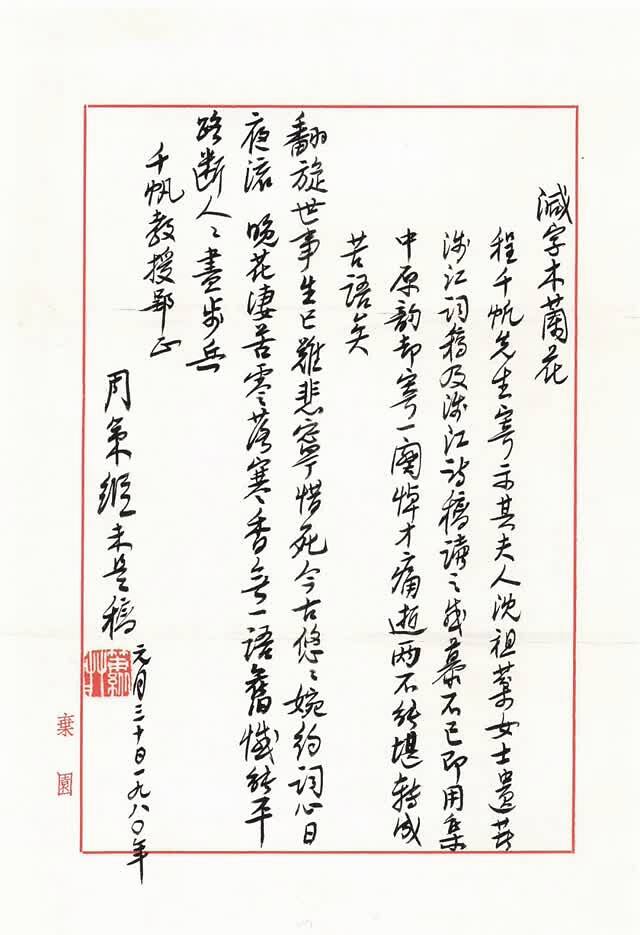 減字木蘭花
程千帆先生寄示其夫人沈祖棻女士遺著
涉江詞稿及涉江詩稿讀之感慕不已即用集
中原韵却寄一闋悼才痛逝两不能堪轉成
苦語矣
翻旋世事生已難悲寧惜死今古悠〻婉約詞心日
夜流 晚花淒苦零落寒香無一語舊憾能平
路断人〻盡步兵
千帆教授郢正
周策縱未是稿
元月三十日一九八〇年
棄園